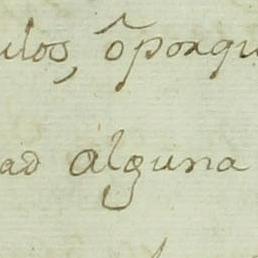 ulos, ô porqu
ad alguna